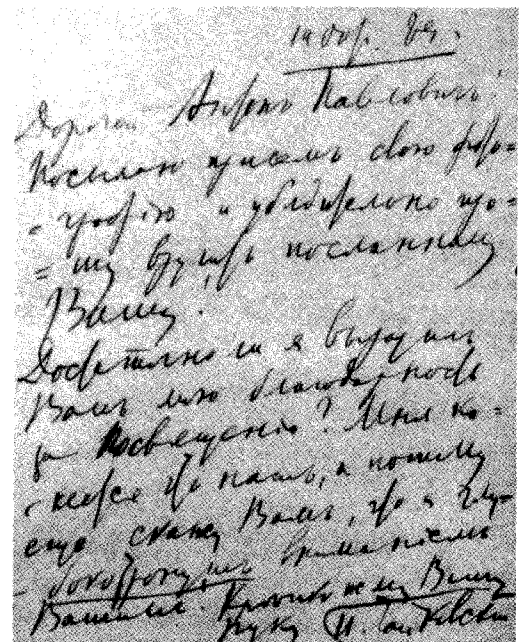 14 окт. 89.
Дорогой Антонъ Павловичъ!
Посылаю при семъ свою фото-
= графію и убѣдительно про-
= шу вручить посланному
Вашу.
Достаточно ли я выразилъ
Вамъ мою благодарность
за посвященіе? Мнѣ ка=
- жется что нѣтъ, а потому
еще скажу Вамъ, что я глу-
- боко тронутъ вниманіемъ
Вашимъ. Крѣпко жму Вашу
руку П. Чайковскій